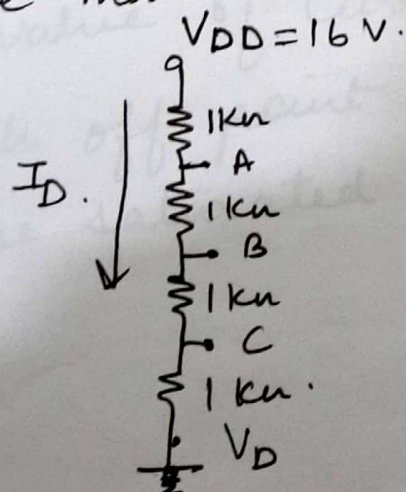 VDD = 16 V.
1KΩ
A
ID.
1KΩ
B
1KΩ
C
1KΩ.
VD